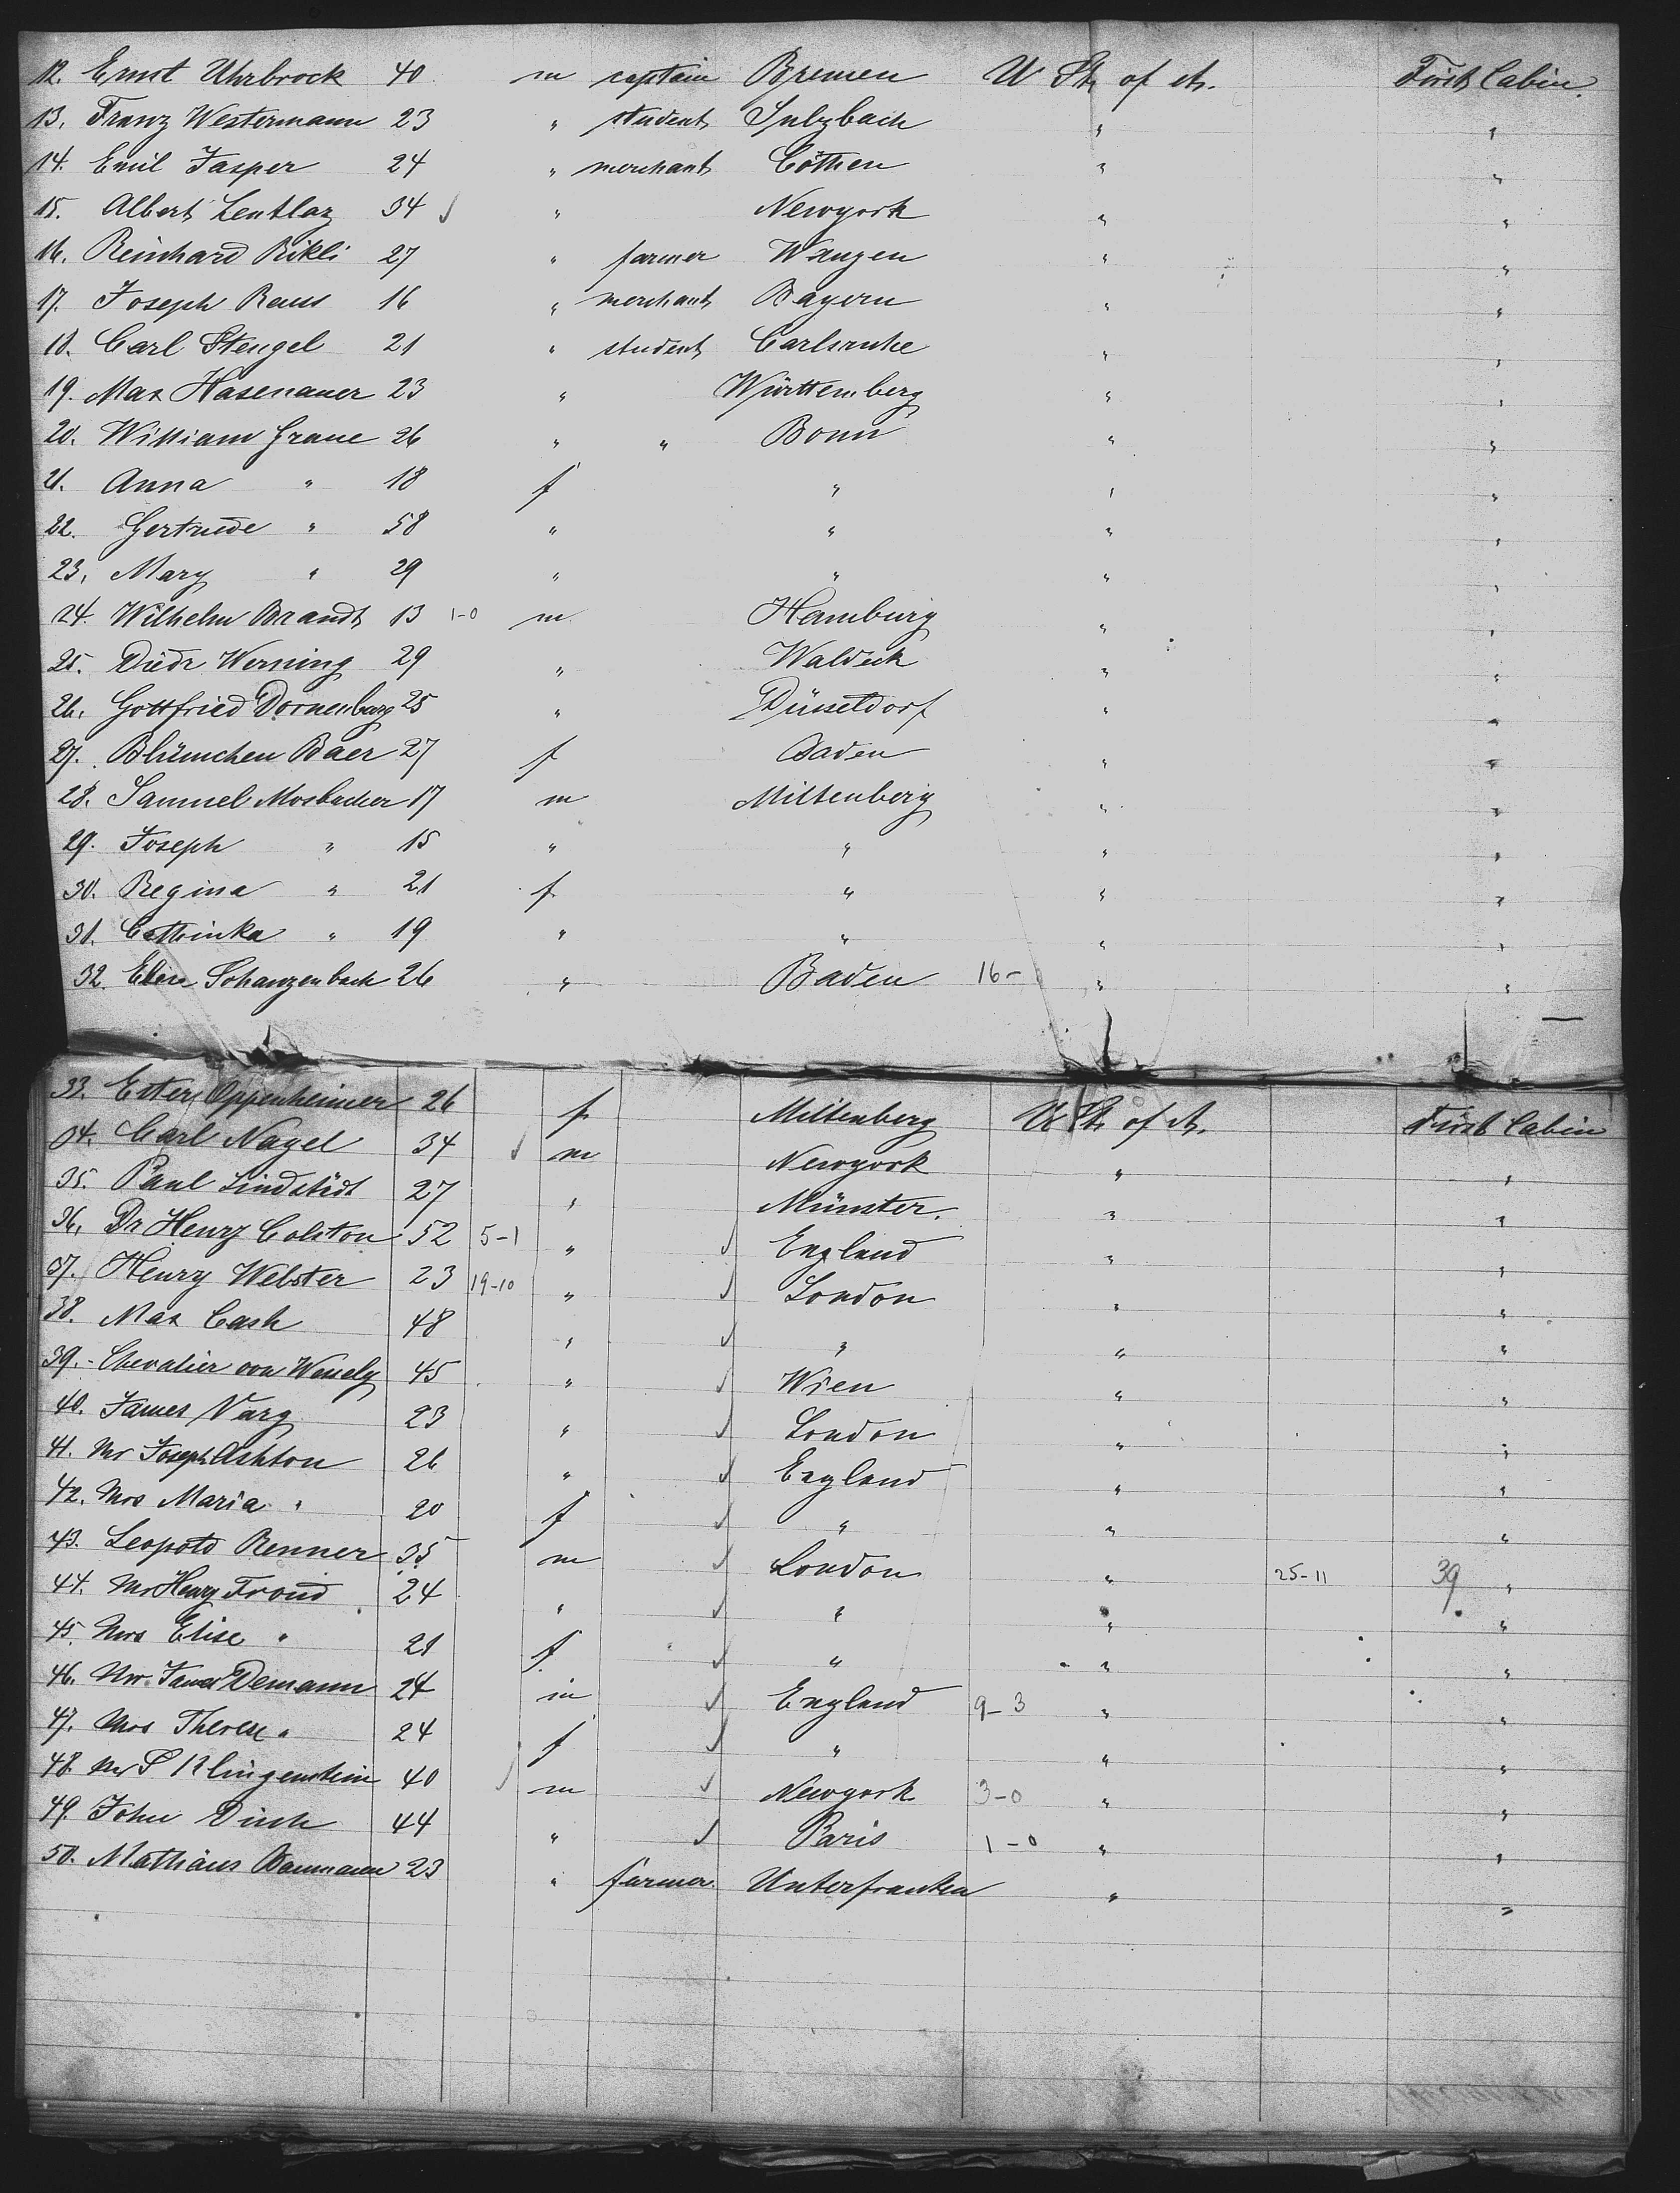 12. Ernst Uhrbrock 40 m captain Bremen U St. of A. First Cabin.
13. Franz Westermann 23 " student Sulzbach " "
14. Emil Jasper 24 " merchant Cöthen " "
15. Albert Lentlaz 34 " Newyork " "
16. Reinhard Rikli 27 " farmer Wangen " "
17. Joseph Reuss 16 " merchant Bayern " "
18. Carl Stengel 21 " student Carlsruhe " "
19. Max Hasenauer 23 " Württemberg " "
20. William Graue 26 " " Bonn " "
21. Anna " 18 f " " "
22. Gertrude " 58 " " " "
23. Mary " 29 " " " "
24. Wilhelm Brandt 13 1-0 m Hamburg " "
25. Diedr Werning 29 " Waldeck " "
26. Gottfried Dornenburg 25 " Düsseldorf " "
27. Blümchen Baer 27 f Baden " "
28. Samuel Mosbacher 17 m Miltenberg " "
29. Joseph " 15 " " " "
30. Regina " 21 f " " "
31. Cathinka " 19 " " " "
32. Elise Schanzenbach 26 " Baden 16- " "
33. Ester Oppenheimer 26 f Miltenberg U St. of A. First Cabin
34. Carl Nagel 34 m Newyork " "
35. Paul Lindstädt 27 " Münster. " "
36. Dr Henry Colston 52 5-1 " England " "
37. Henry Webster 23 19-10 " London " "
38. Max Cash 48 " " " "
39. Chevalier von Wessely 45 " Wien " "
40. James Varg 23 " London " "
41. Mr Joseph Ashton 26 " England " "
42. Mrs Maria " 20 f " " "
43. Leopold Renner 35 m London " 25-11 39 "
44. Mr Henry Froud 24 " " " "
45. Mrs Elise " 21 f " " "
46. Mr. James Demann 24 m England 9-3 " "
47. Mrs Therese " 24 f " " "
48. Mr S Klingenstein 40 m Newyork 3-0 " "
49. John Disch 44 " Paris 1-0 " "
50. Mathäus Baumann 23 " farmer Unterfranken " "